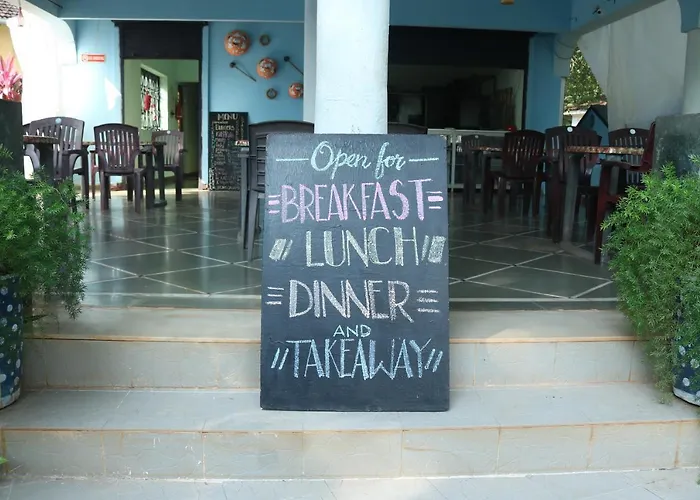 MENU
Open for
BREAKFAST
LUNCH
DINNER
AND
TAKEAWAY